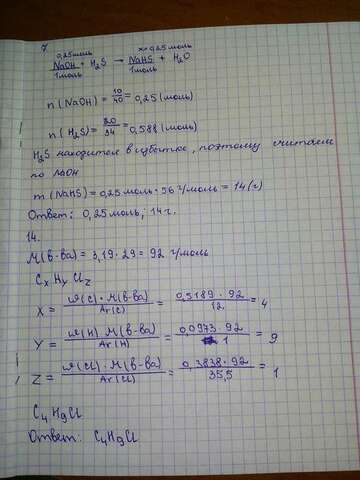 7
0,25 моль x=0,25 моль
NaOH + H₂S → NaHS + H₂O
1 моль 1 моль
n (NaOH) = 10/40 = 0,25 (моль)
n (H₂S) = 20/34 = 0,588 (моль)
H₂S находится в избытке, поэтому считаем
по NaOH
m (NaHS) = 0,25 моль · 56 г/моль = 14 (г)
Ответ: 0,25 моль; 14 г.
14.
M(в-ва) = 3,19 · 29 = 92 г/моль
CxHyClz
X = ω(C) · M(в-ва) / Ar(C) = 0,5189 · 92 / 12 = 4
Y = ω(H) M(в-ва) / Ar(H) = 0,0973 · 92 / 1 = 9
Z = ω(Cl) · M(в-ва) / Ar(Cl) = 0,3838 · 92 / 35,5 = 1
C₄H₉Cl
Ответ: C₄H₉Cl